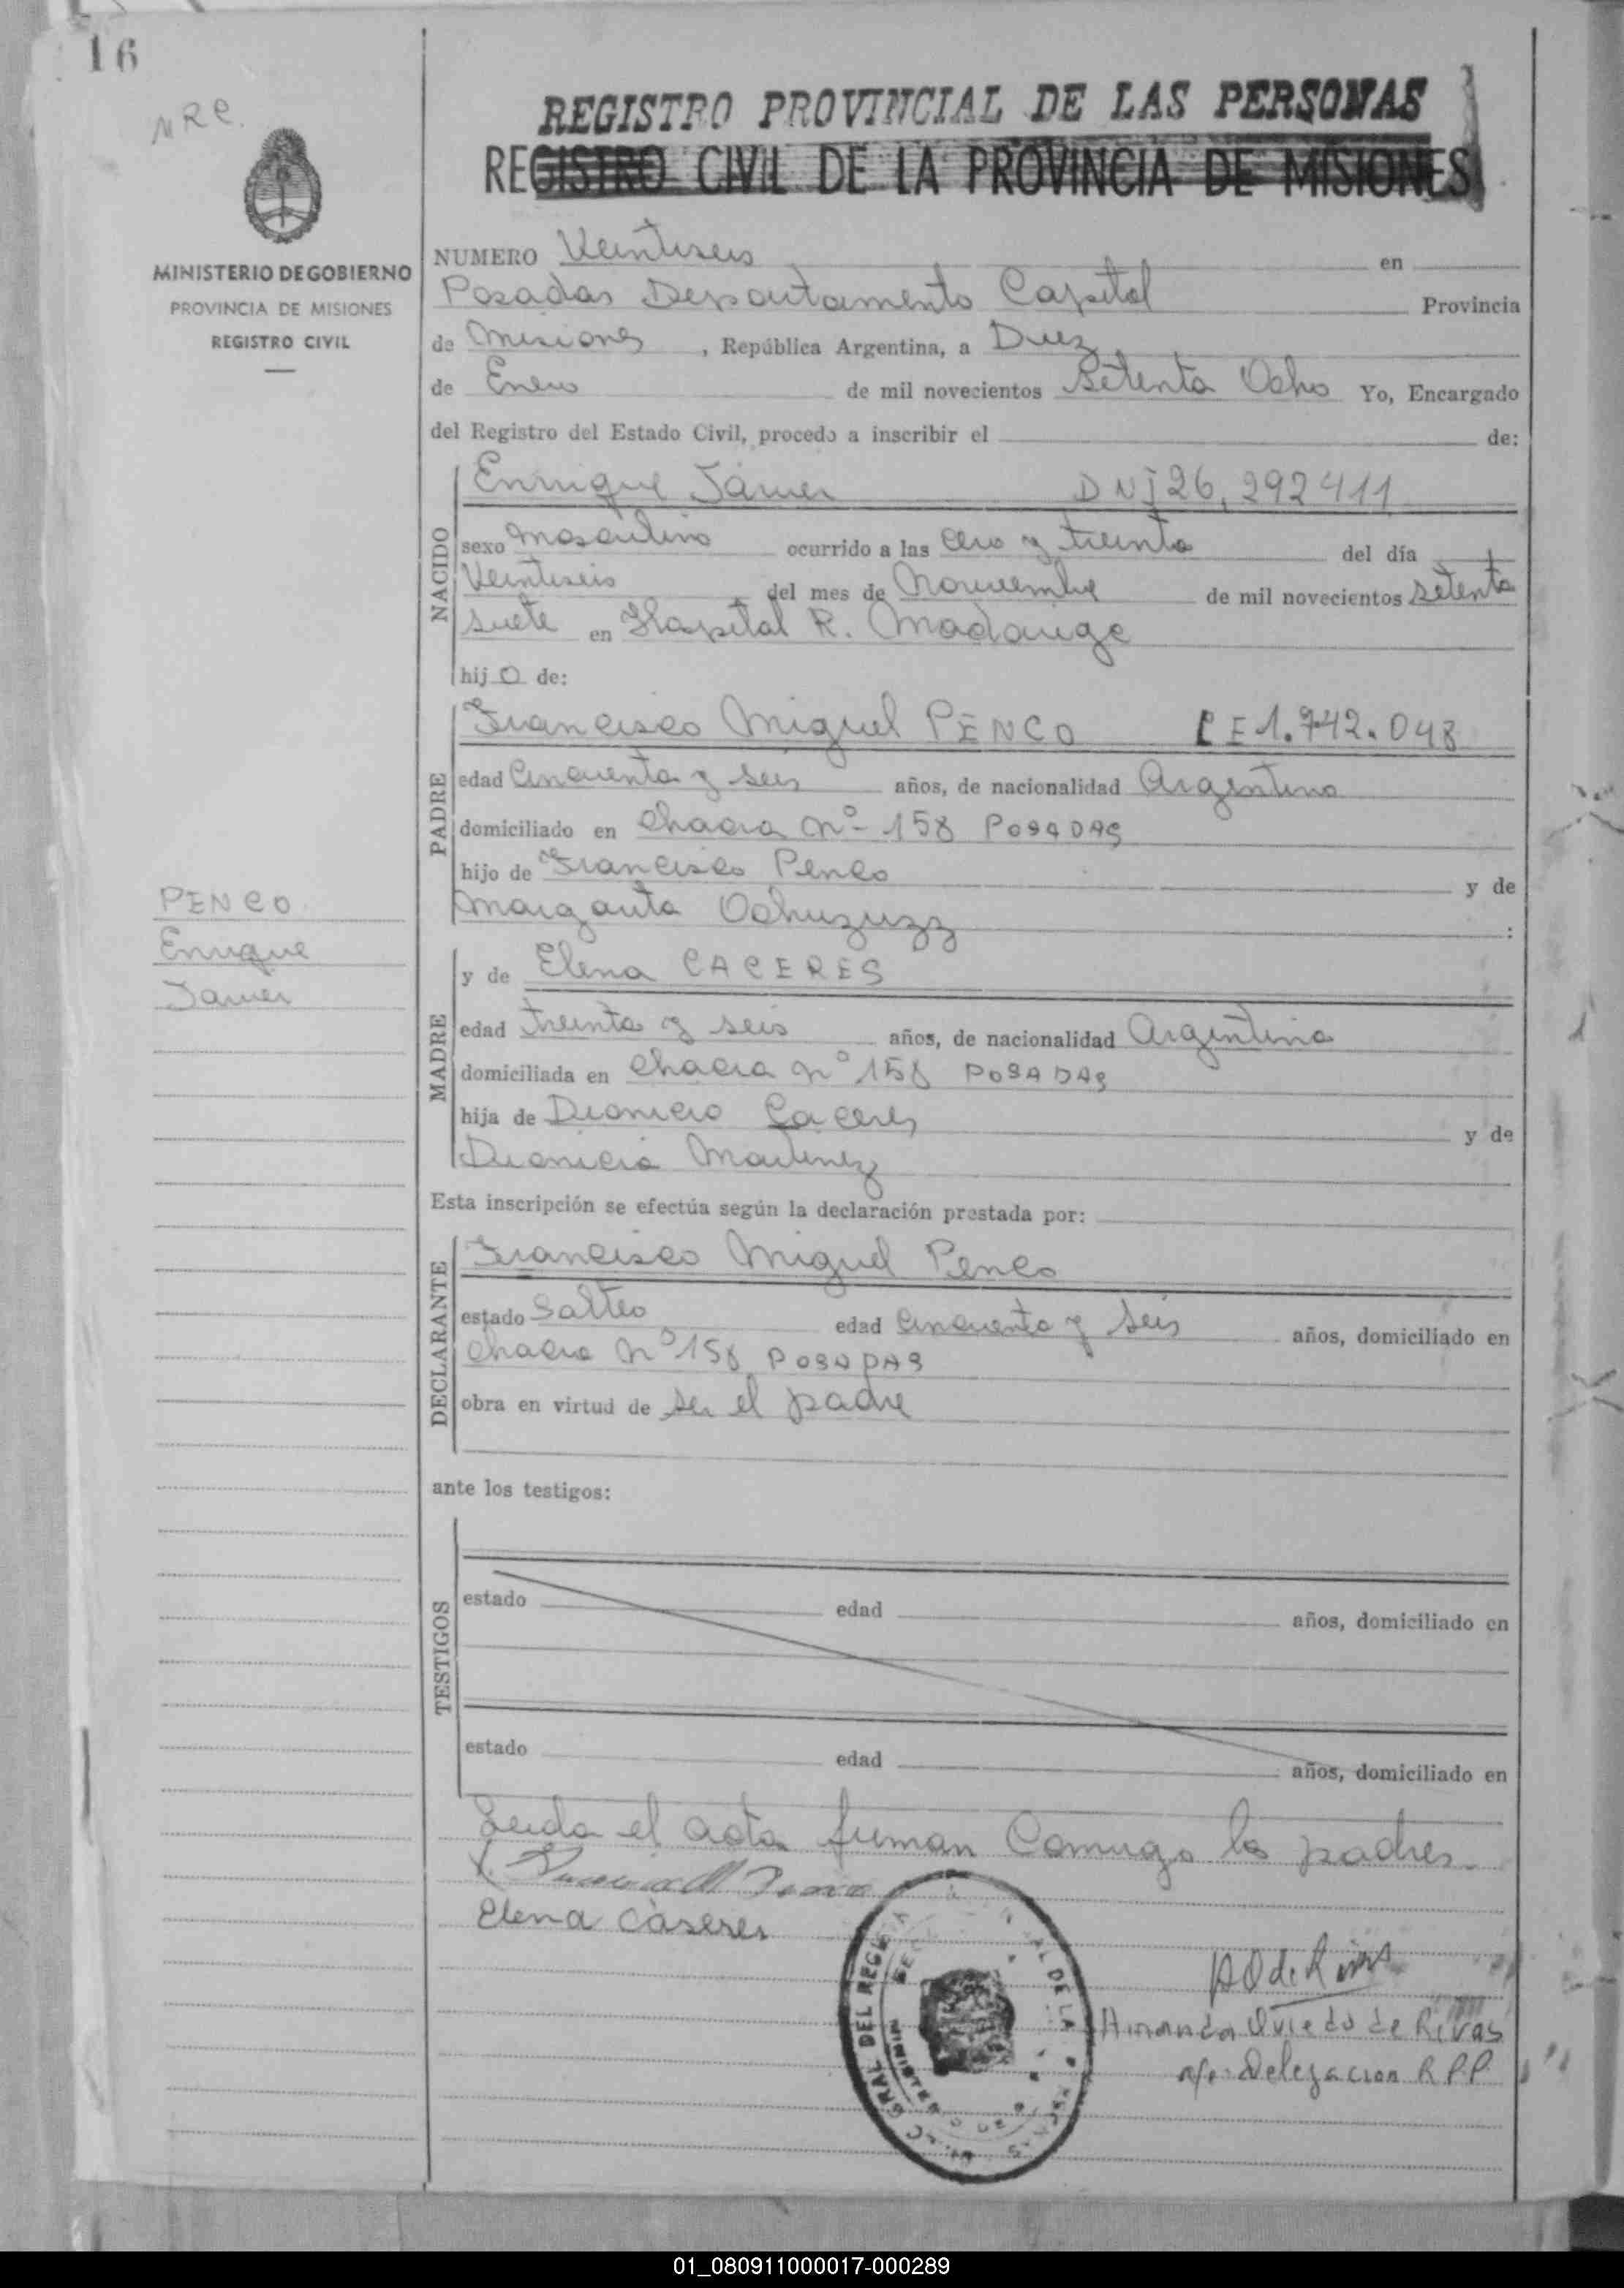 16
NRC.
REGISTRO PROVINCIAL DE LAS PERSONAS
REGISTRO CIVIL DE LA PROVINCIA DE MISIONES
MINISTERIO DE GOBIERNO
PROVINCIA DE MISIONES
REGISTRO CIVIL
NUMERO Veintiseis en
Posadas Departamento Capital Provincia
de Misiones, República Argentina, a Diez
de Enero de mil novecientos Setenta Ocho Yo, Encargado
del Registro del Estado Civil, procedo a inscribir el de:
NACIDO
Enrique Javier DNI 26,292411
sexo masculino ocurrido a las Cero y treinta del día
Veintiseis del mes de Noviembre de mil novecientos setenta
siete en Hospital R. Madariaga
hijo de:
PADRE
Francisco Miguel PENCO CE 1.742.048
edad Cincuenta y seis años, de nacionalidad Argentino
domiciliado en Chacra Nº 158 POSADAS
hijo de Francisco Penco y de
Margarita :
MADRE
y de Elena CACERES
edad treinta y seis años, de nacionalidad Argentina
domiciliada en Chacra Nº 158 POSADAS
hija de Dionicio Caceres y de
Dionicia Martinez
Esta inscripción se efectúa según la declaración prestada por:
DECLARANTE
Francisco Miguel Penco
estado Solteo edad Cincuenta y seis años, domiciliado en
Chacra Nº 158 POSADAS
obra en virtud de ser el padre
ante los testigos:
TESTIGOS
estado edad años, domiciliado en
estado edad años, domiciliado en
Leida el acta firman Conmigo los padres.
Elena Caseres
Oviedo de Rivas
Delegacion R P P
GRAL DEL REGIS
DE LA
MINISTE
PENCO
Enrique
Javier
01_080911000017-000289